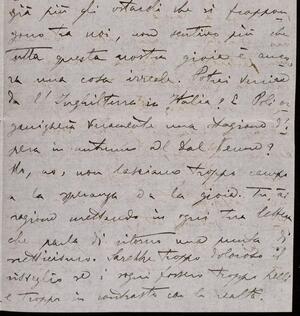 già più gli ostacoli che si frappon
gono tra noi, non sentivo più che
tutta questa nostra gioia è anco
ra una cosa irreale. Potrei venire
da l'Inghilterra in Italia? E Poli or
ganizzerà veramente una stagione d'o
pera in autunno al Dal Verme?
No, no, non lasciamo troppo campo
a la speranza e a la gioia. Tu hai
ragione mettendo in ogni tua lettera
che parla di ritorno una punta di
scetticismo. Sarebbe troppo doloroso il
risveglio se i sogni fossero troppo belli
e troppo in contrasto con la realtà.